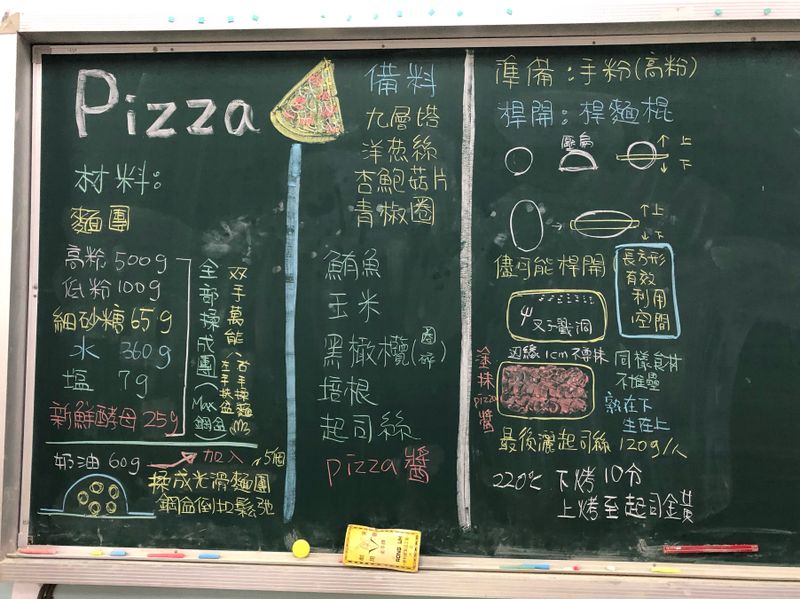 Pizza
材料:
麵團
高粉 500g
低粉 100g
細砂糖 65g
水 360g
塩 7g
新鮮酵母 25g
全部揉成團(Max鋼盆)
双手萬能
奶油 60g → 加入
揉成光滑麵團
鋼盆倒扣鬆弛
備料
九層塔
洋蔥絲
杏鮑菇片
青椒圈
鮪魚
玉米
黑橄欖(圈 碎)
培根
起司絲
pizza醬
準備:手粉(高粉)
桿開:桿麵棍
壓扁
↑上
↓下
↑上
↓下
儘可能桿開
長方形
有效
利用
空間
叉子戳洞
邊緣1cm不專抹
塗抹pizza醬
同樣食材
不堆疊
熟在下
生在上
最後灑起司絲 120g/人
220℃ 下烤10分
上烤至起司金黃